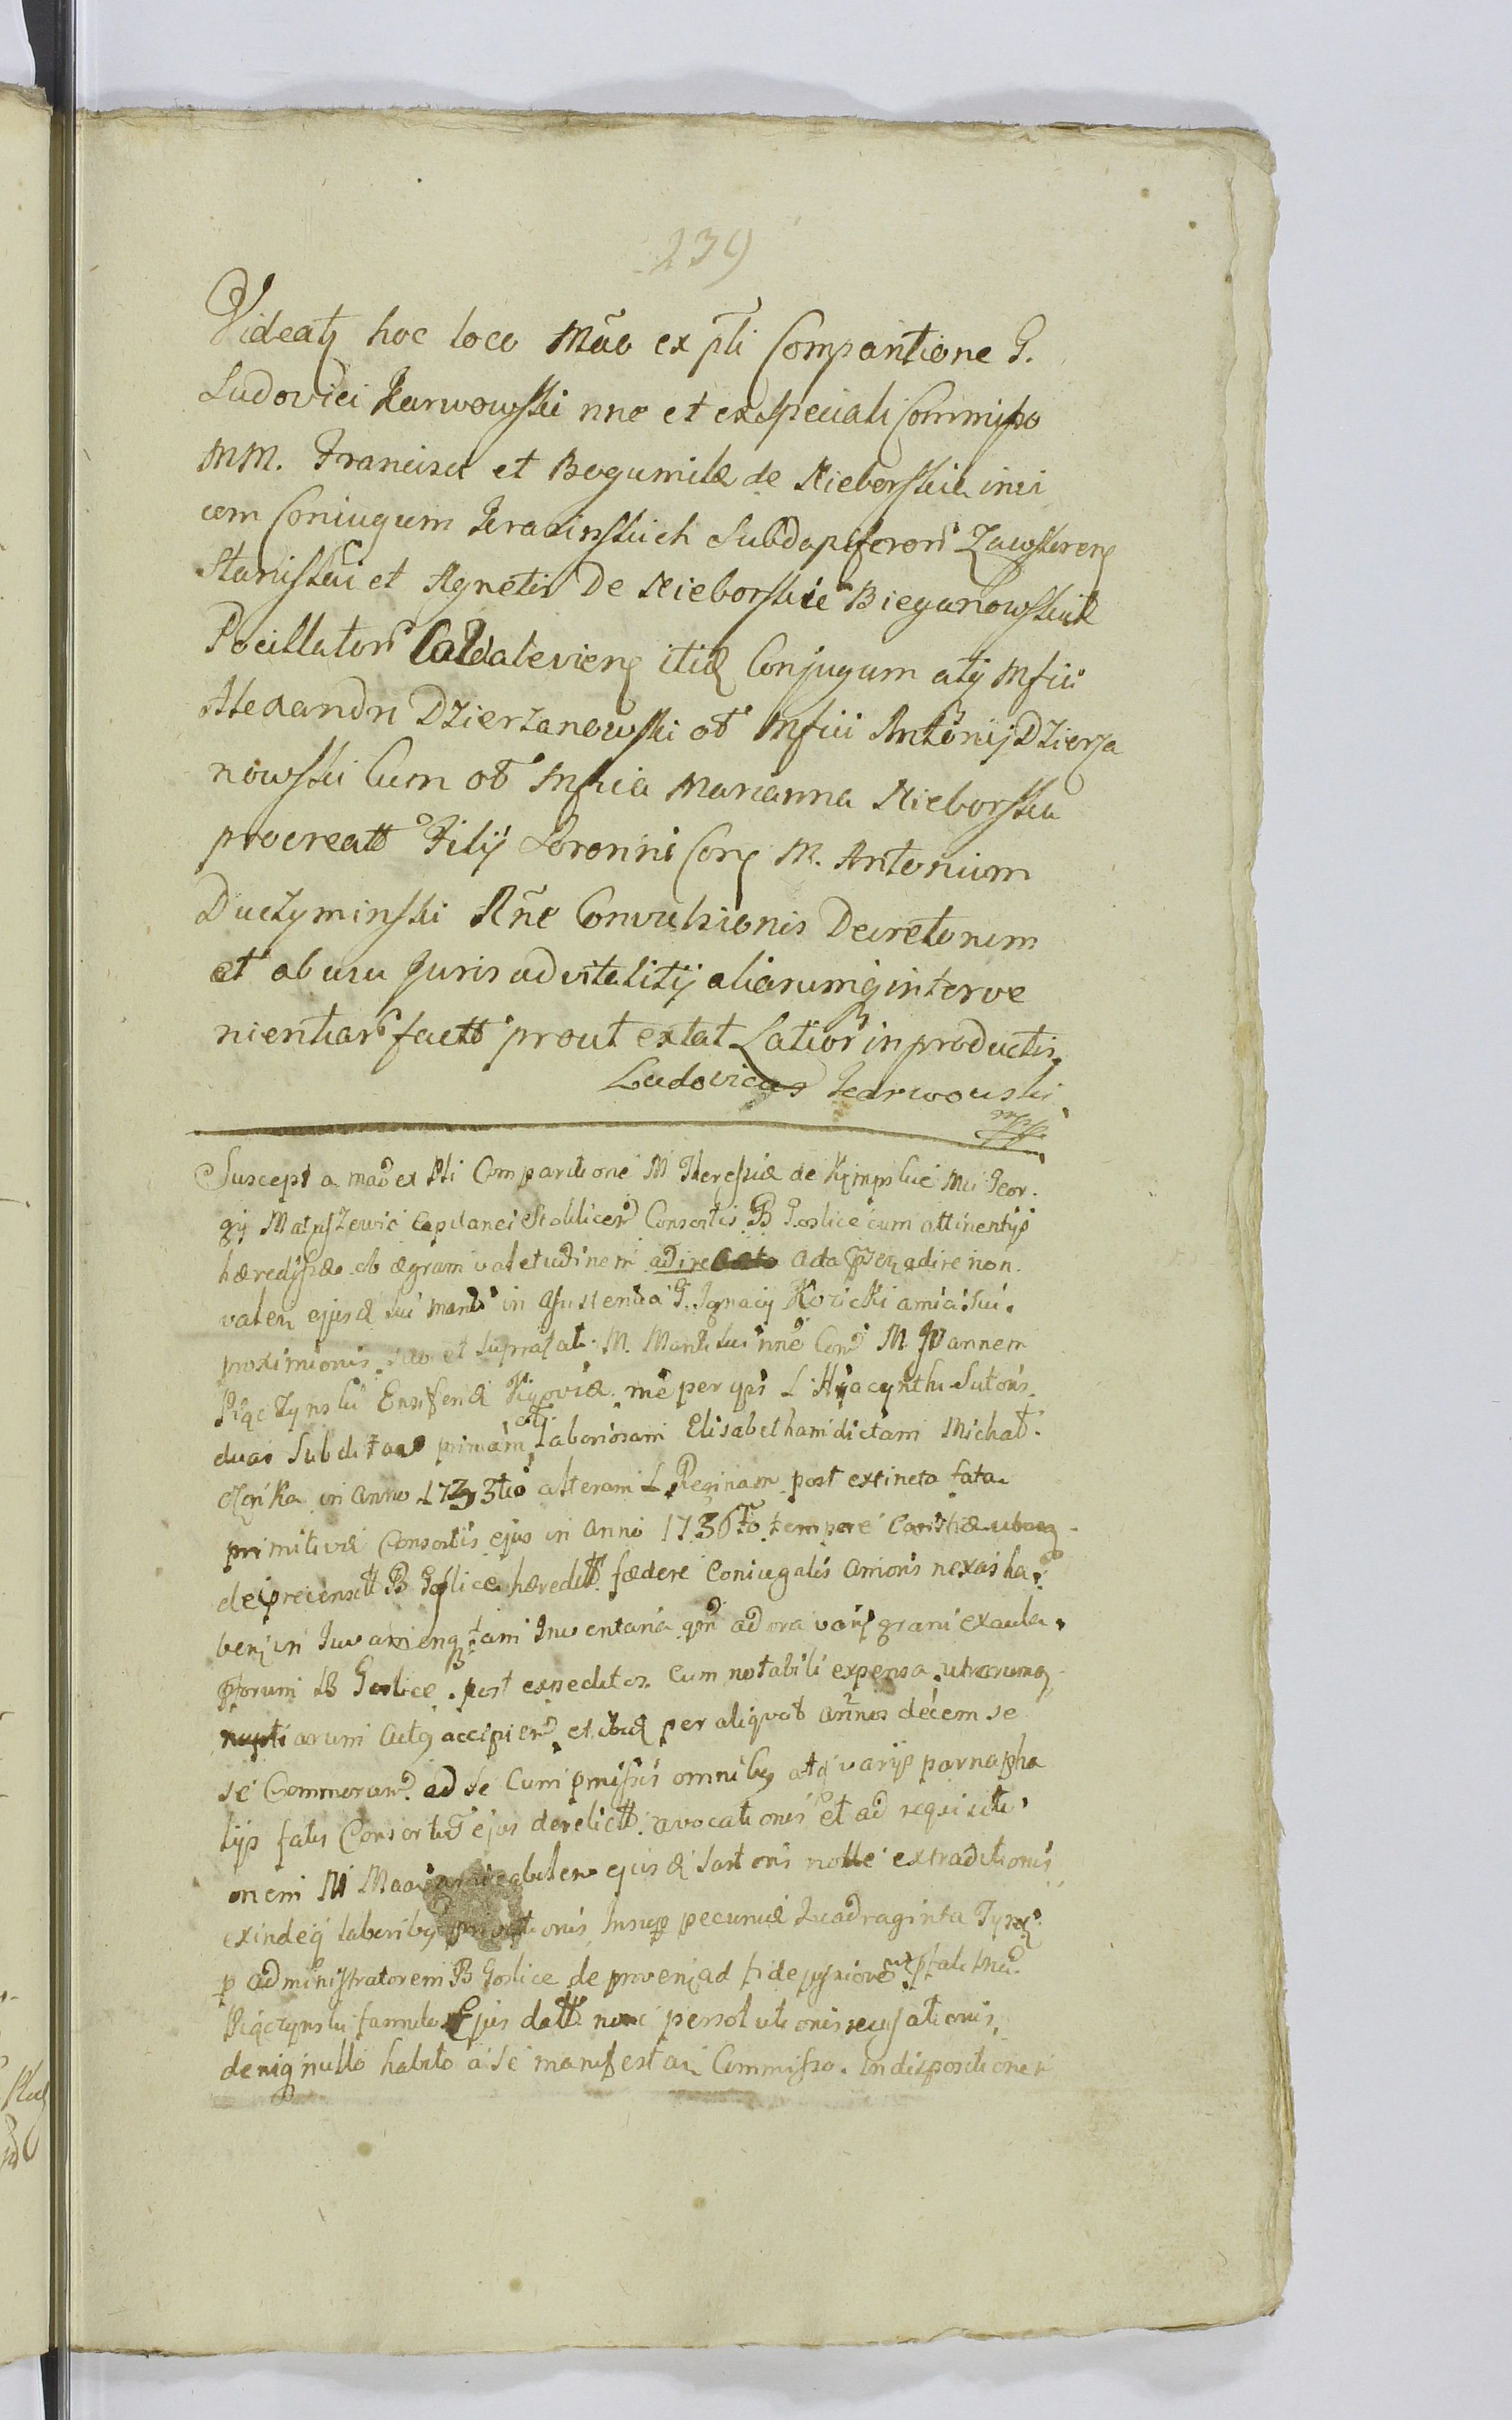 239
Videatꝫ hoc loco Mãõ ex pti Comparitione G.
Ludovici Karwowski nne et ex speciali Commisso
MM. Francisci et Bogumilæ de Nieborskie invi
cem Coniugum Krasinskich Subdapiferorũ Zawskrenꝫ
Stanislai et Agnetis De Nieborskie Bieganowskich
Pocillatorũ itid Conjugum atꝫ Mfici
Alexandri Dzierzanowski ol Mfici Antonij Dzierza
nowski Cum ol Mfica Marianna Nieborska
procreatt Filij Coron M. Antonium
Duczyminski Rñe Convulsionis Decretorum
et abusu Juris advitalitij aliarumq interve
nientiarũ factt prout extat Latior in productis.
Ludovicus Karwowski
mpp
Suscepta mão ex pti Comparitione M Theressiæ de Kempskie Mci Geor.
gij Matuszewic Capitanei Stoklicen Consortis B Goslice cum attinentijs
hæredissæ ob ægram valetudinem adire acta ad a psens adire non.
valen ejusd sui Marit in assistentia G. Ignacij Kozicki amici sui.
proximioris suo et suprafat. M. Marit sui nne Con M Joannem
Piączynski Ensiferid Kijoviæ. rñe per ipsũ L Hyacynthi Sutoris
duas Subditas primam ol laboriosam Elisabetham dictam Michał.
czonka in Anno 1733tio alteram L Reginam post extincta fata
primitivæ Consortis ejus in Anno 1736to tempore utrasq
de precensitt B Goslice hæreditt. fædere Coniugalis amoris nexas ha.
ben in Juvamenq tam Inventaria qm ad ora varij grani ex aula.
ptorum B Goslice. post expeditos. Cum notabili expensa utrarumq
nuptiarum Actꝫ accipien et ibid per aliquot annos decem se
se Commoran ad se Cum pmissis omnibꝫ atq varijs parnapha
lijs fatis Consortũ ejus derelictt. avocationis et ad requisiti
onem M ejusd Sartoris nolle extraditionis
exindeq laboribꝫ privationis Insup pecuniæ Quadraginta Tynf
p administratorem B Goslice de proven ad fidejussione pfati Mci
Piączynski famulo Ejus datt nunc persolutionis recusationis,
deniq nullo habito a se manifestan Commisso. in dispositionem